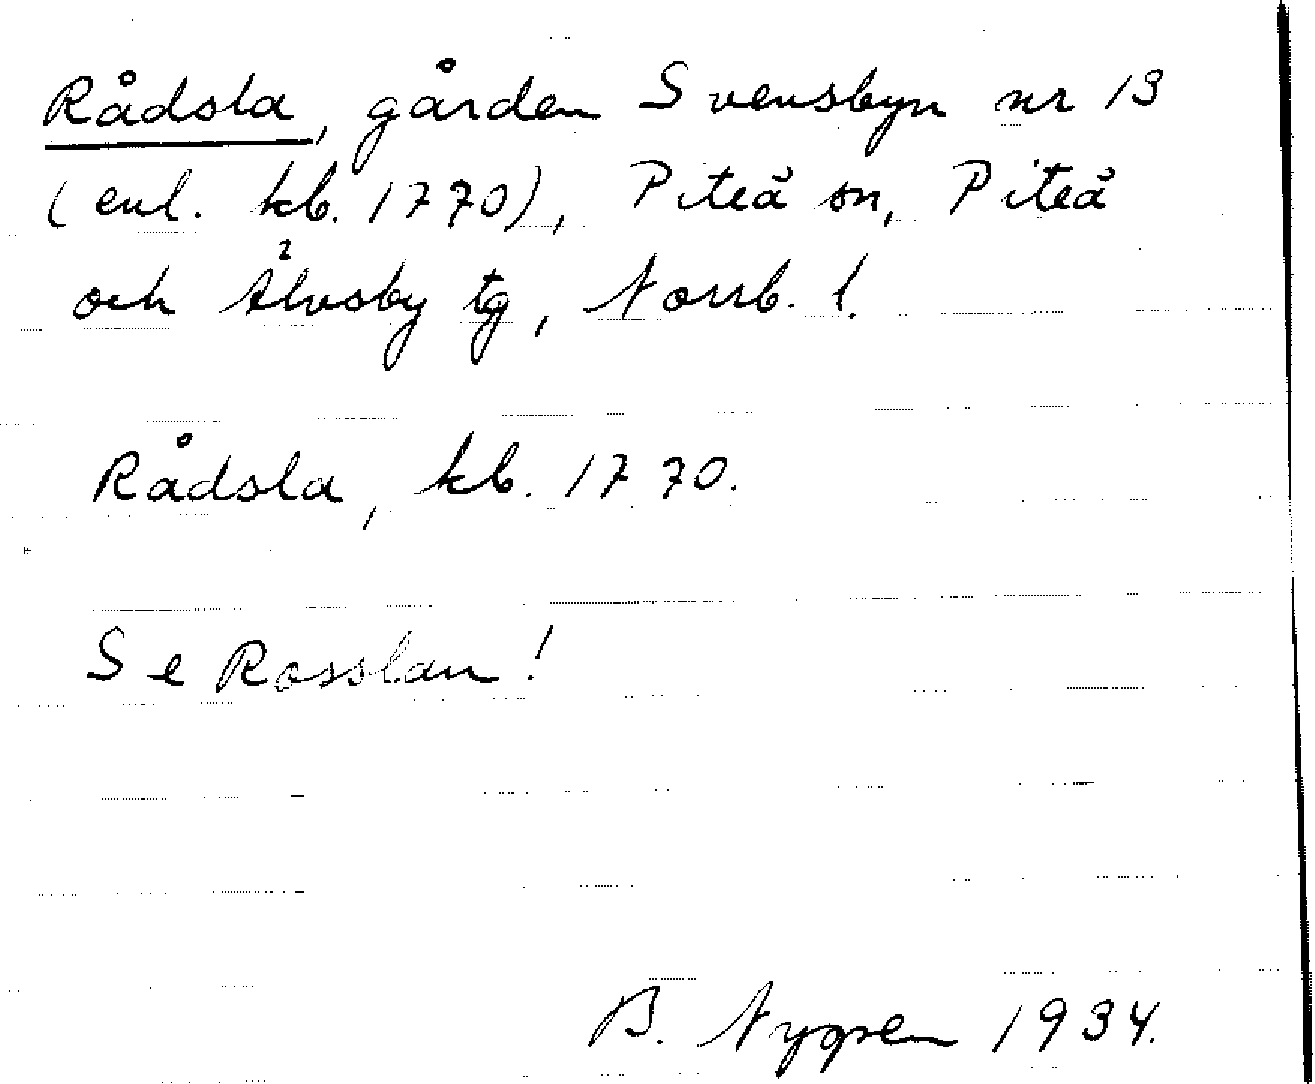 Rådsla, gården Svensbyn nr 13
(enl. kb. 1770), Piteå sn, Piteå
och Älvsby tg, Norrb. l.
Rådsla, kb. 1770.
Se Rosslan!
B. Nygren 1934.